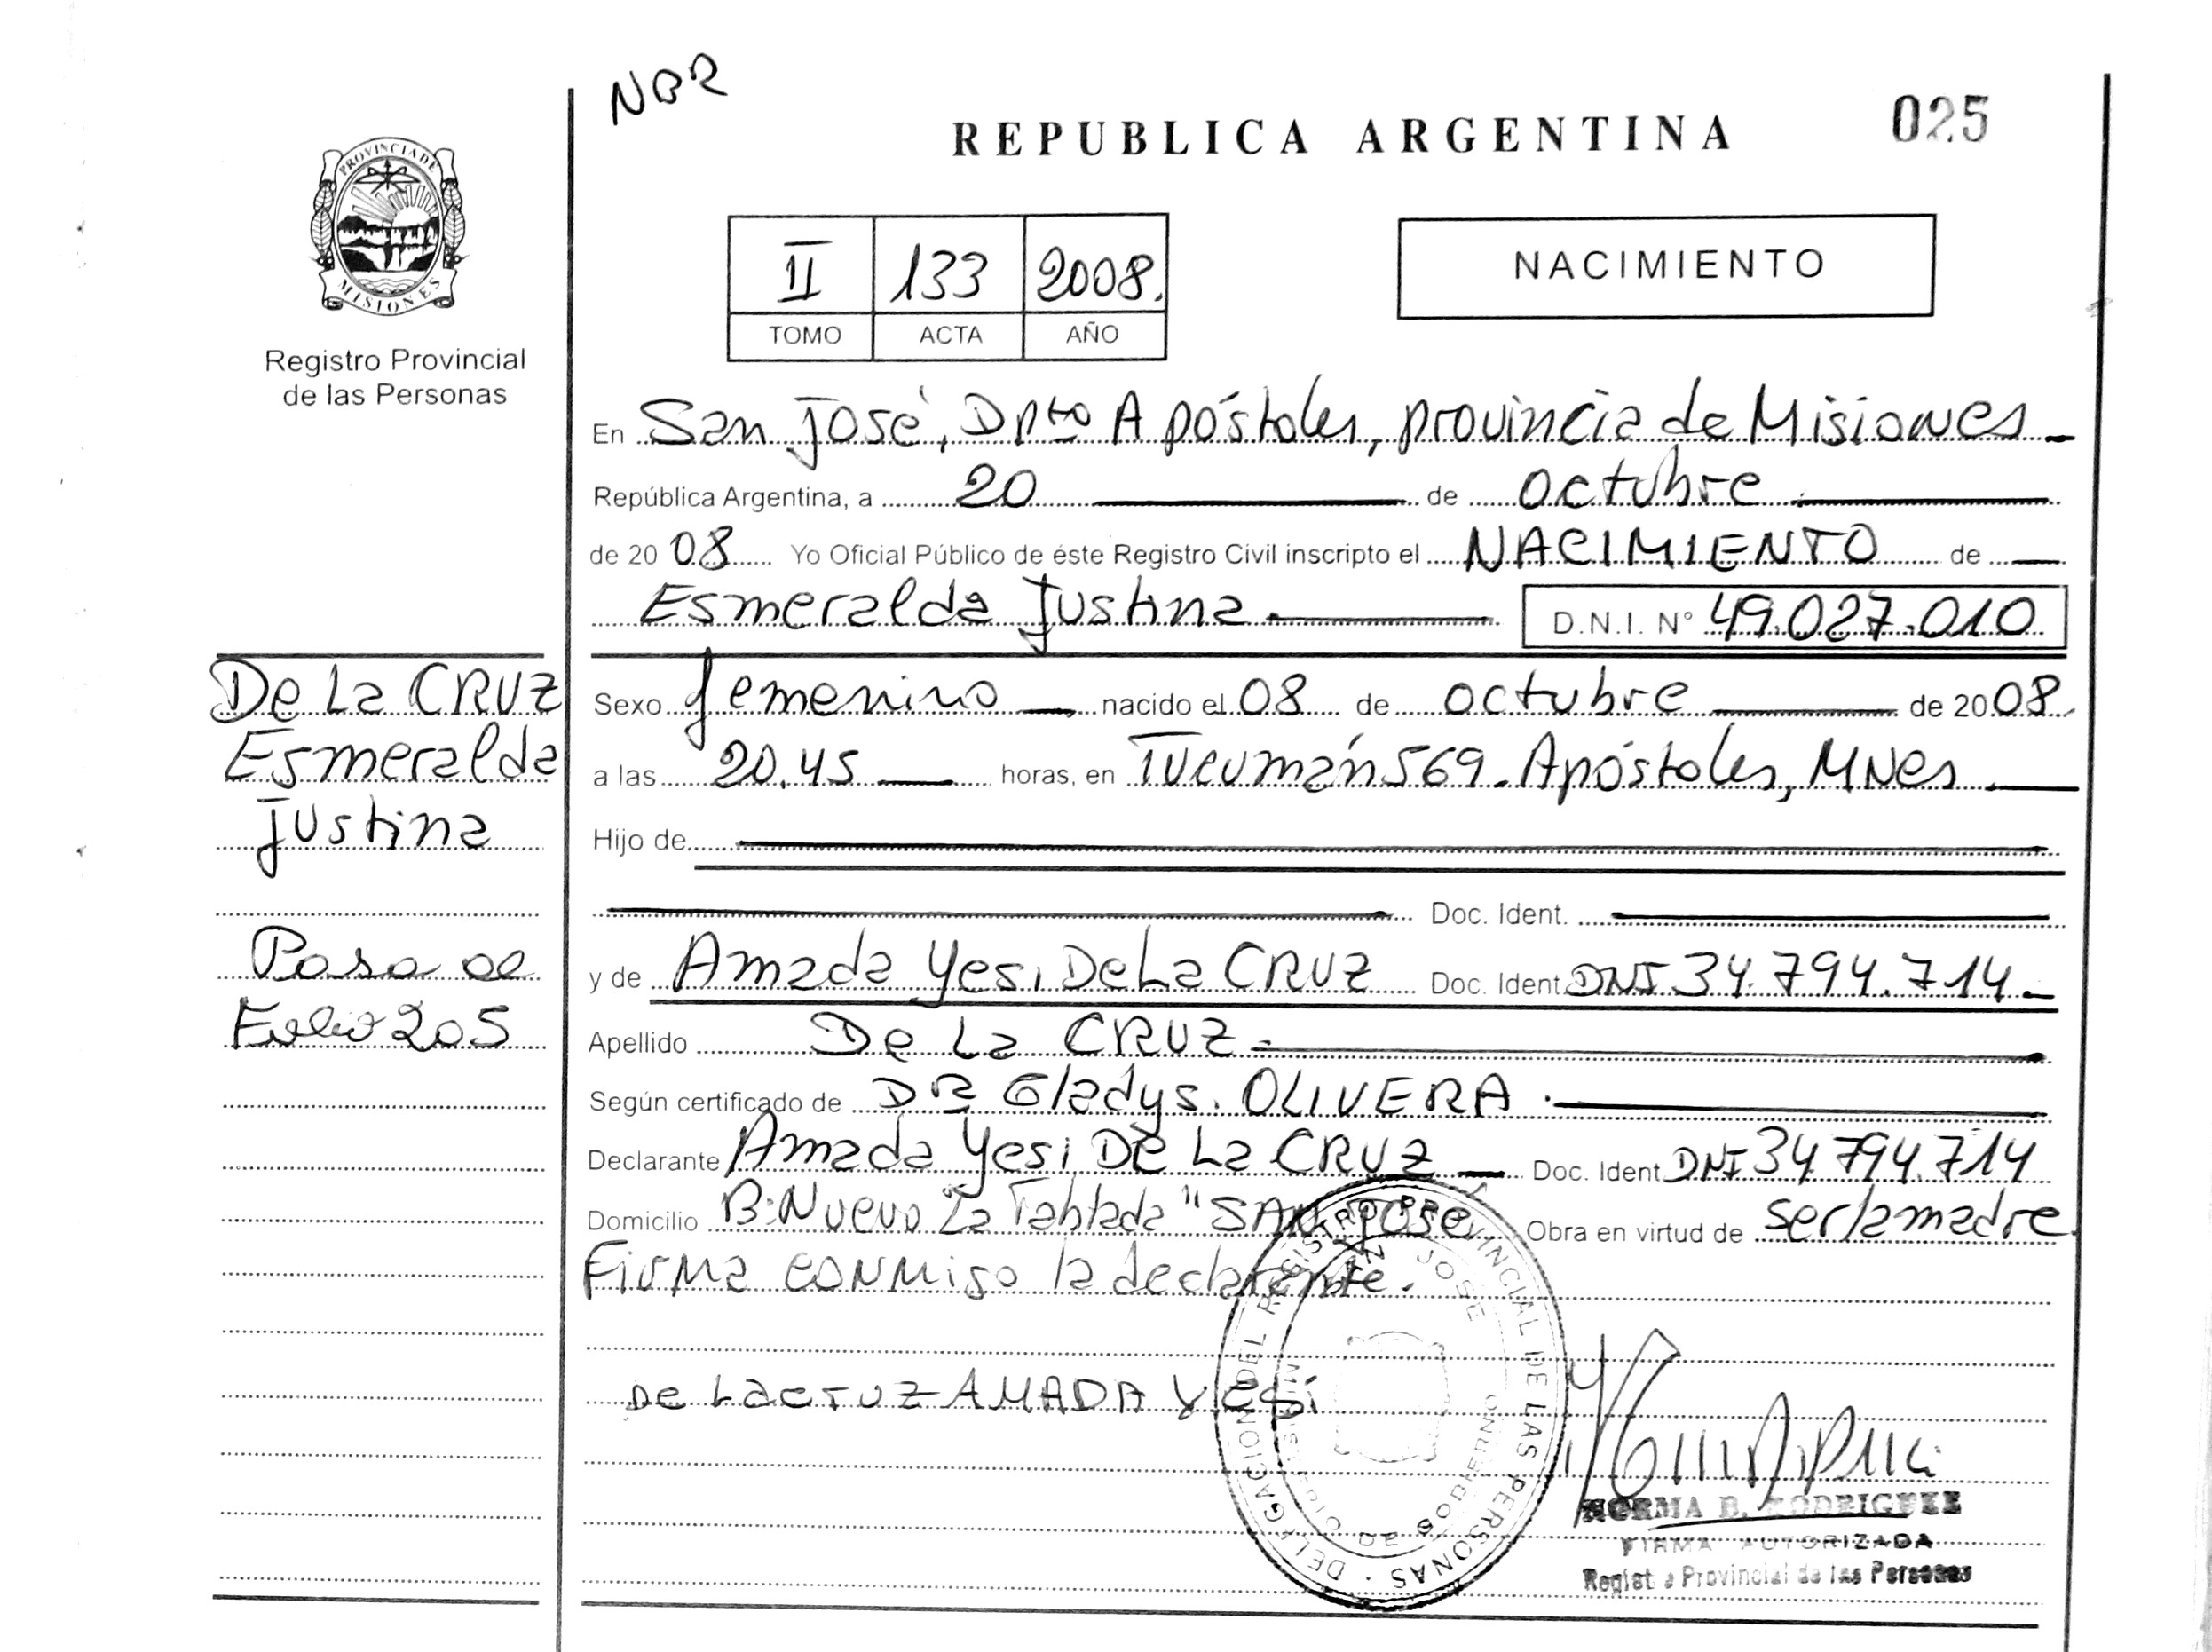 NBR
REPUBLICA ARGENTINA
025
PROVINCIA DE
MISIONES
Registro Provincial
de las Personas
II 133 2008.
TOMO ACTA AÑO
NACIMIENTO
En San José, Dpto Apóstoles, provincia de Misiones
República Argentina, a 20 de octubre
de 20 08 Yo Oficial Público de éste Registro Civil inscripto el NACIMIENTO de
Esmeralda Justina D.N.I. N° 49.027.010
De La CRUZ
Esmeralda
Justina
Pasa al
Folio 205
Sexo femenino nacido el 08 de octubre de 20 08.
a las 20.45 horas, en Tucumán 569. Apóstoles, MNes
Hijo de
Doc. Ident.
y de Amada Yesi De La CRUZ Doc. Ident. DNI 34.794.714.
Apellido De La CRUZ.
Según certificado de DRa Gladys. OLIVERA.
Declarante Amada Yesi De La CRUZ Doc. Ident. DNI 34.794.714
Domicilio B: Nuevo "La Tablada" SAN JOSE Obra en virtud de ser la madre
Firma conmigo la declarante.
De La cruz AMADA YESi
DELEGACION DEL REGISTRO PROVINCIAL DE LAS PERSONAS
SAN JOSE
MISIONES
GOBIERNO
NORMA B. RODRIGUEZ
FIRMA AUTORIZADA
Registro Provincial de las Personas